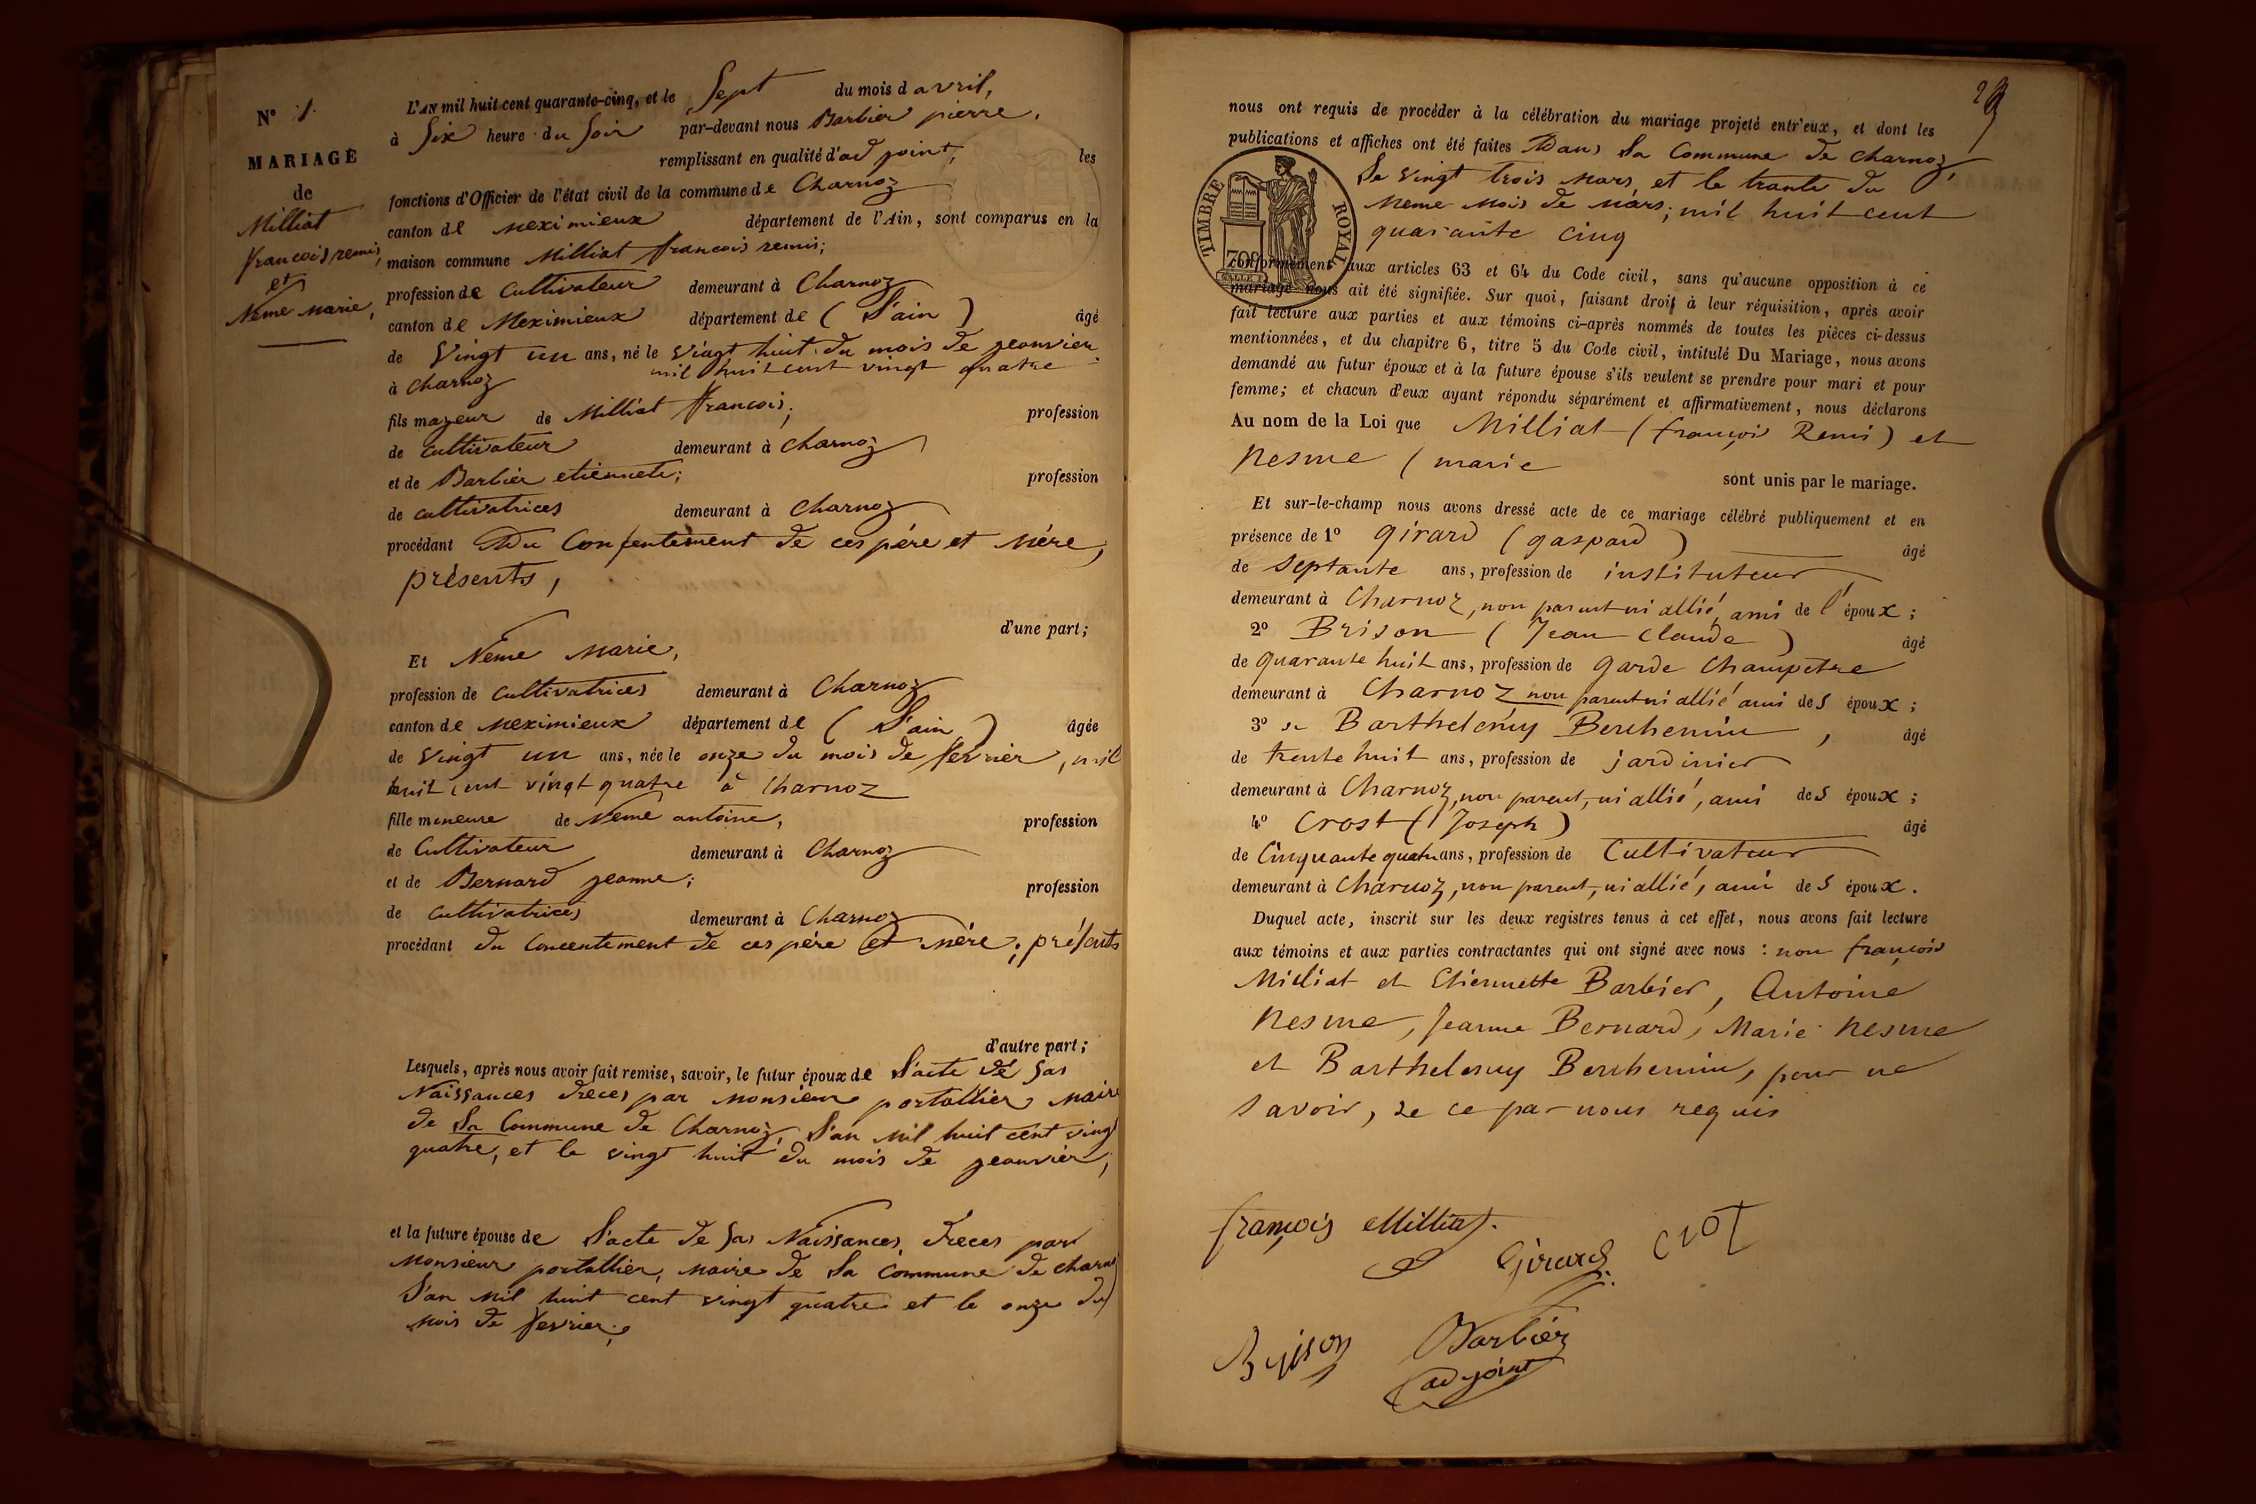 N° 1.
MARIAGE
de
Milliat
francois remis,
et
Neme marie,
L'AN mil huit cent quarante-cinq, et le Sept du mois d avril,
à Six heure du Soir par-devant nous Barbier pierre,
remplissant en qualité d'ad joint, les
fonctions d'Officier de l'état civil de la commune de Charnoz
canton de meximieux département de l'Ain, sont comparus en la
maison commune Milliat francois remis;
profession de Cultivateur demeurant à Charnoz
canton de Meximieux département de ( L'ain ) âgé
de Vingt un ans, né le vingt huit du mois de jeanvier
à Charnoz mil huit cent vingt quatre
fils mageur de Milliat francois, profession
de Cultivateur demeurant à Charnoz
et de Barbier etiennete; profession
de cultivatrices demeurant à Charnoz
procédant Du Consentement de ces pére et Mére,
présents,
d'une part;
Et Neme Marie,
profession de Cultivatrices demeurant à Charnoz
canton de meximieux département de ( L'ain ) âgée
de Vingt un ans, née le onze du mois de fevrier, mil
huit cent vingt quatre à Charnoz
fille meneure de Neme antoine, profession
de Cultivateur demeurant à Charnoz
et de Bernard jeanne; profession
de Cultivatrices demeurant à Charnoz
procédant du Concentement de ces pére et mére; présents
d'autre part;
Lesquels, après nous avoir fait remise, savoir, le futur époux de L'acte de Sas
Naissances dreces par monsieur portallier maire
de La Commune de Charnoz, L'an mil huit cent vingt
quatre, et le vingt huit du mois de jeanvier,
et la future épouse de L'acte de Sas Naissances, dreces par
Monsieur portallier, maire de La Commune de Charnoz
L'an mil huit cent vingt quatre et le onze du
mois de fevrier;
29
nous ont requis de procéder à la célébration du mariage projeté entr'eux, et dont les
publications et affiches ont été faites Dans La Commune de Charnoz,
Le vingt trois mars, et le trante du
meme mois de mars; mil huit cent
quarante cinq
TIMBRE ROYAL
70c
conformément aux articles 63 et 64 du Code civil, sans qu'aucune opposition à ce
mariage nous ait été signifiée. Sur quoi, faisant droit à leur réquisition, après avoir
fait lecture aux parties et aux témoins ci-après nommés de toutes les pièces ci-dessus
mentionnées, et du chapitre 6, titre 5 du Code civil, intitulé Du Mariage, nous avons
demandé au futur époux et à la future épouse s'ils veulent se prendre pour mari et pour
femme; et chacun d'eux ayant répondu séparément et affirmativement, nous déclarons
Au nom de la Loi que Milliat (françois Remi) et
Nesme ( marie
sont unis par le mariage.
Et sur-le-champ nous avons dressé acte de ce mariage célébré publiquement et en
présence de 1° Girard (gaspard) âgé
de Septante ans, profession de instituteur
demeurant à Charnoz, non parent ni allié, ami de l'époux;
2° Brison ( Jean Claude ) âgé
de quarante huit ans, profession de Garde Champetre
demeurant à Charnoz non parent ni allié ami des époux;
3° Barthelemy Berthemin, âgé
de trente huit ans, profession de jardinier
demeurant à Charnoz, non parent, ni allié, ami des époux;
4° Crost (Joseph) âgé
de Cinquante quatre ans, profession de Cultivateur
demeurant à Charnoz, non parent, ni allié, ami des époux.
Duquel acte, inscrit sur les deux registres tenus à cet effet, nous avons fait lecture
aux témoins et aux parties contractantes qui ont signé avec nous : non françois
Milliat et Etiennette Barbier, Antoine
Nesme, Jeanne Bernard, Marie Nesme
et Barthelemy Berthemin, pour ne
savoir, de ce par nous requis
françois Milliat.
Girard
crot
Brison
Barbier
adjoint